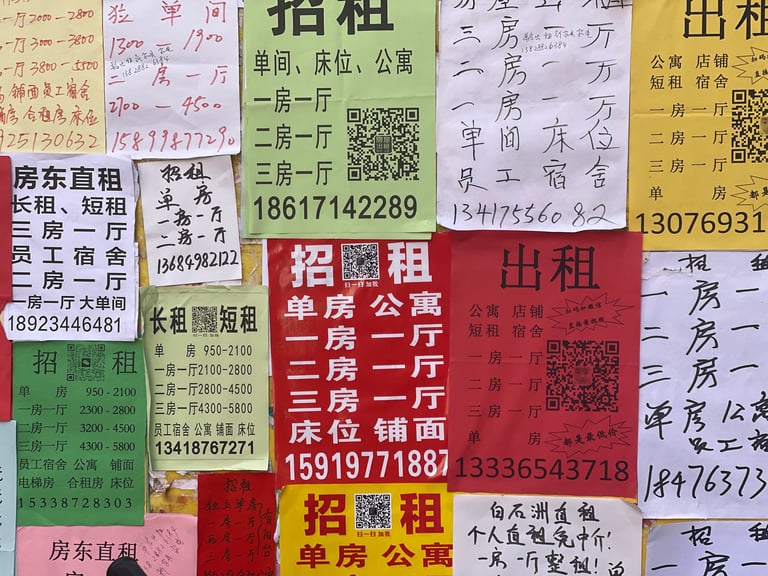 一厅2000-2800
一厅3000-3800
一厅3800-5500
铺面员工宿舍
房 合租房 床位
925130632
独单间
1300 1900
二房一厅
2700-4500
15899877290
招租
单间、床位、公寓
一房一厅
二房一厅
三房一厅
18617142289
三房一厅
二房一厅
一房一厅
单间床位
员工宿舍
13417556082
出租
公寓 店铺
短租 宿舍
一房一厅
二房一厅
三房一厅
单 房
13076931
房东直租
长租、短租
三房一厅
员工宿舍
二房一厅
一房一厅 大单间
18923446481
招租
单房
一房一厅
二房一厅
13684982122
长租 短租
单 房 950-2100
一房一厅2100-2800
二房一厅2800-4500
三房一厅4300-5800
员工宿舍 公寓 铺面 床位
13418767271
招 租
单 房 950-2100
一房一厅 2300-2800
二房一厅 3200-4500
三房一厅 4300-5800
员工宿舍 公寓 铺面
电梯房 合租房 床位
15338728303
招 租
扫一扫 加我
单房 公寓
一房一厅
二房一厅
三房一厅
床位 铺面
15919771887
出租
公寓 店铺
短租 宿舍
扫码加微信
直接看视频
一房一厅
二房一厅
三房一厅
单 房
都是最低价
13336543718
招 租
一房一
二房一
三房一
单房 公寓
员工宿
18476373
房东直租
招租
独立单房
一房一厅
二房一厅
三房一厅
招 租
扫一扫 加我
单房 公寓
白石洲直租
个人直租免中介!
一房一厅整租!
招 租
一房一